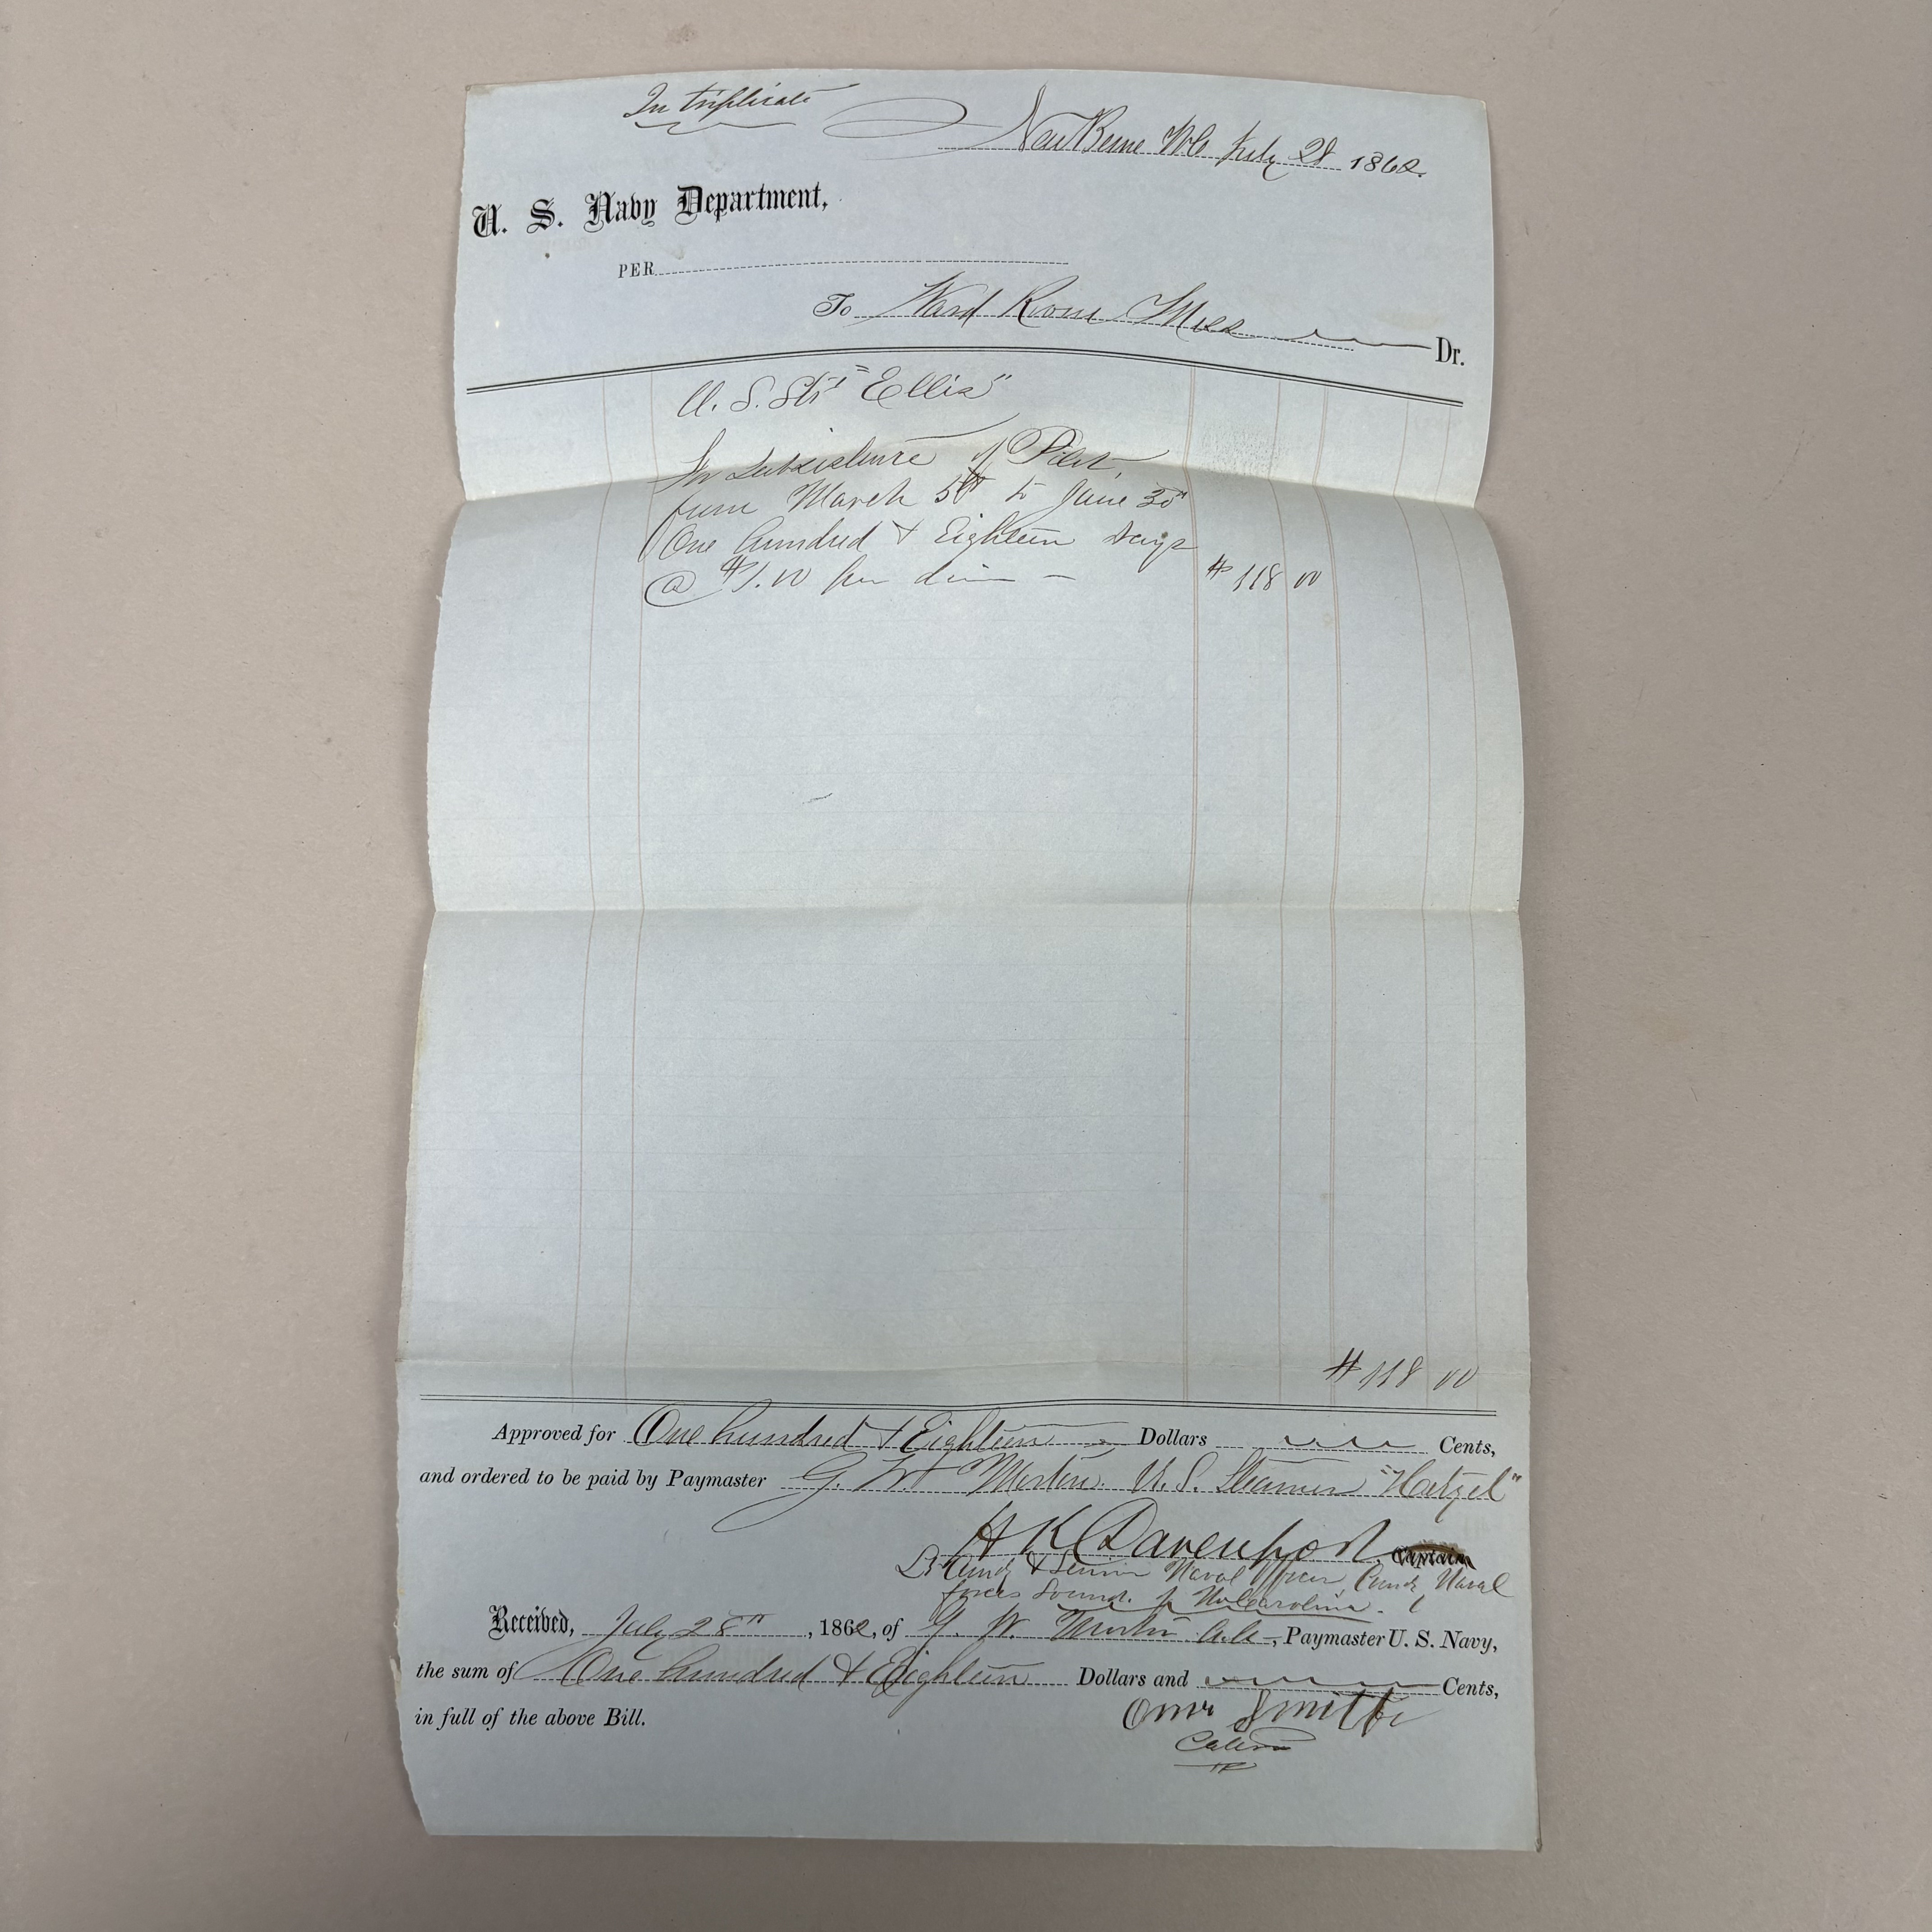 In triplicate
New Berne N.C. July 28 1862.
U. S. Navy Department,
PER
To Ward Room Mess Dr.
U. S. Str "Ellis"
For Subsistence of Pilot,
from March 5th to June 30th
One hundred & Eighteen days
@ $1.00 per diem - $118 00
$118 00
Approved for One hundred & Eighteen Dollars Cents,
and ordered to be paid by Paymaster G. W. Morton. U. S. Steamer "Hetzel"
H K Davenport,
Lt Comdr & Senior Naval Officer, Comdg Naval
forces Sounds of No Carolina.
Received, July 28th, 1862, of G. W. Morton, Paymaster U. S. Navy,
the sum of One hundred & Eighteen Dollars and Cents,
in full of the above Bill.
Smith